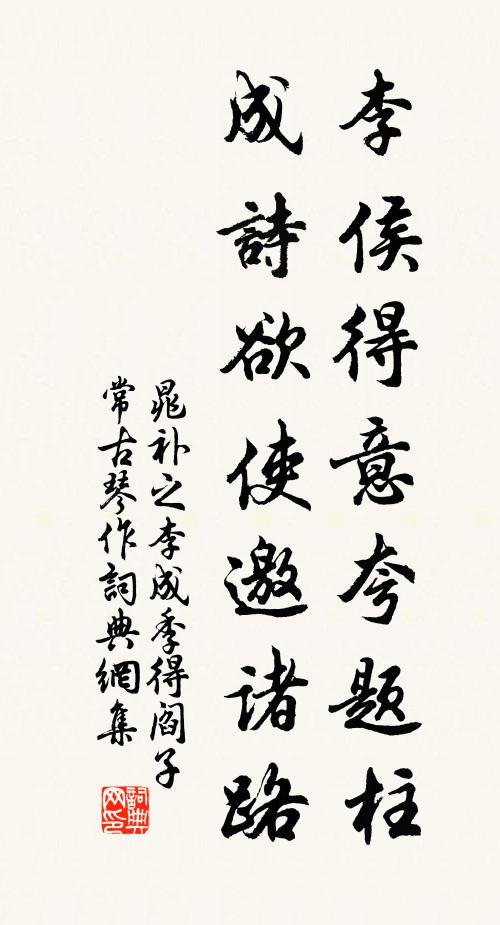 李侯得意夸题柱
成詩欲使邀诸路
晁补之李成季得阎子
常古琴作詞典網集
詞典网印